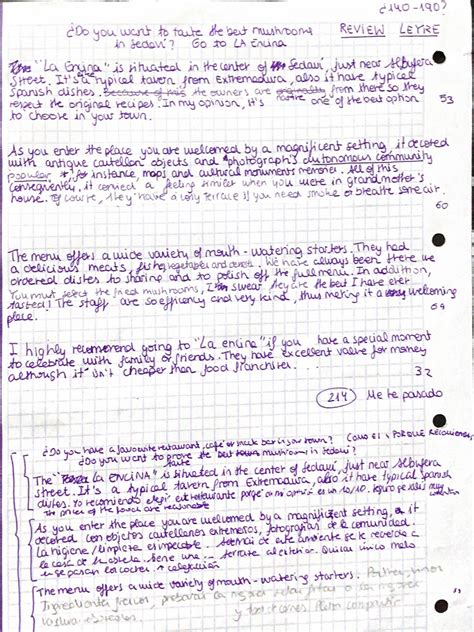 ¿140-190?
¿Do you want to taste the best mushrooms
in Sedaví? Go to LA Encina
REVIEW LEYRE
"La Encina" is situated in the center of Sedaví, just near Albufera
street. It's a typical tavern from Extremadura, also it have typical
Spanish dishes. Because of this the owners are originally from there so they
respect the original recipes. In my opinion, it's one of the best option
to choose in your town.
53
As you enter the place you are welcomed by a magnificent setting, it decored
with antique castellan objects and photograph's autonomous community
popular *, for instance, maps and cultural monuments memories. All of this
consequently, it conveied a feeling similar when you were in grandmother's
house. Of course, they have a cosy terrace if you need smoke o breathe some air.
60
The menu offers a wide variety of mouth-watering starters. They had
a delicious meats, fish, vegetables and deserts. We have always been there we
ordered dishes to sharing and to polish off the full menu. In addition,
You must select the fried mushrooms, I swear they are the best I have ever
tasted! The staff are so efficiency and very kind, thus making it a welcoming
place.
69
I highly recommend going to "La encina" if you have a special moment
to celebrate with family or friends. They have excellent value for money
although it isn't cheaper than food franchises...
32
214 Me he pasado
¿Do you have a favourite restaurant, café or snack bar in your town? Cómo es y PORQUE RECOMIENDAS
¿Do you want to prove the best mushrooms in Sedaví?
taste
The "LA ENCINA" is situated in the center of Sedaví, just near Albufera
street. It's a typical tavern from Extremadura, also it have typical Spanish
dishes. Yo recomiendo elegir este restaurante porque en mi opinión es un 10/10.
The prices of the food are reasonable
As you enter the place you are welcomed by a magnificent setting, a it
decored con objetos castellanos extremeños, fotografías de la comunidad.
La higiene / limpieza es impecable. Además de este ambiente se te recuerda a
la casa de la abuela. tiene una... terraza al exterior. Quizás único malo
The menu offers a wide variety of mouth-watering starters.